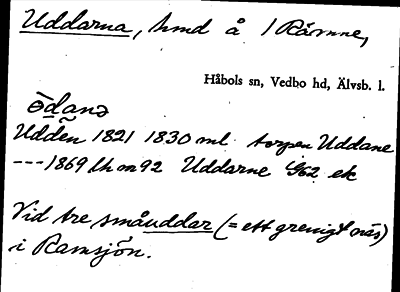 Uddarna, hmd å 1 Rävne,
Håbols sn, Vedbo hd, Älvsb. l.
Udden 1821 1830 ml torpen Uddane
---1869 lh m 92 Uddarne G62 ek
Vid tre småuddar (= ett grenigt näs)
i Ramsjön.